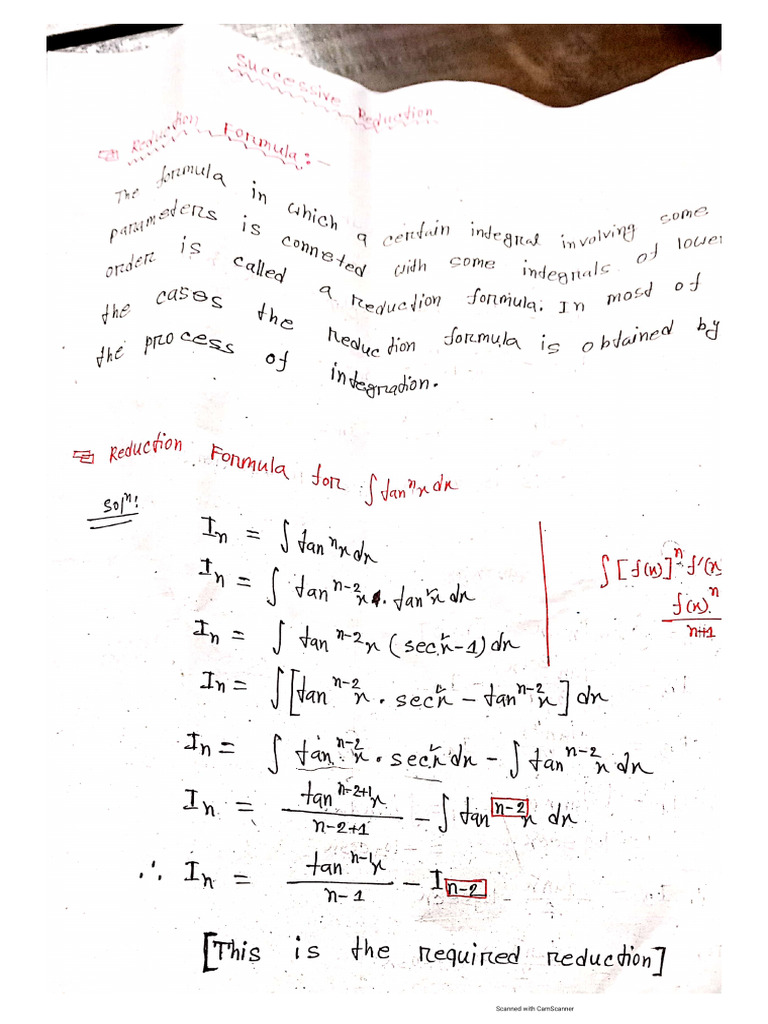 Successive Reduction
Reduction Formula:-
The formula in which a certain integral involving some
parameters is conneted with some integrals of lower
order is called a reduction formula. In most of
the cases the reduction formula is obtained by
the process of integration.
Reduction Formula for ∫tanⁿx dx
Solⁿ:
Iₙ = ∫tanⁿx dx
Iₙ = ∫ tanⁿ⁻²x . tan²x dx
Iₙ = ∫ tanⁿ⁻²x (sec²x-1) dx
Iₙ = ∫[tanⁿ⁻²x . sec²x - tanⁿ⁻²x] dx
Iₙ = ∫ tanⁿ⁻²x . sec²x dx - ∫tanⁿ⁻²x dx
Iₙ = tanⁿ⁻²⁺¹x / n-2+1 - ∫tanⁿ⁻²x dx
∴ Iₙ = tanⁿ⁻¹x / n-1 - Iₙ₋₂
[This is the required reduction]
∫[f(x)]ⁿ f'(x
f(x)ⁿ
n+1
Scanned with CamScanner